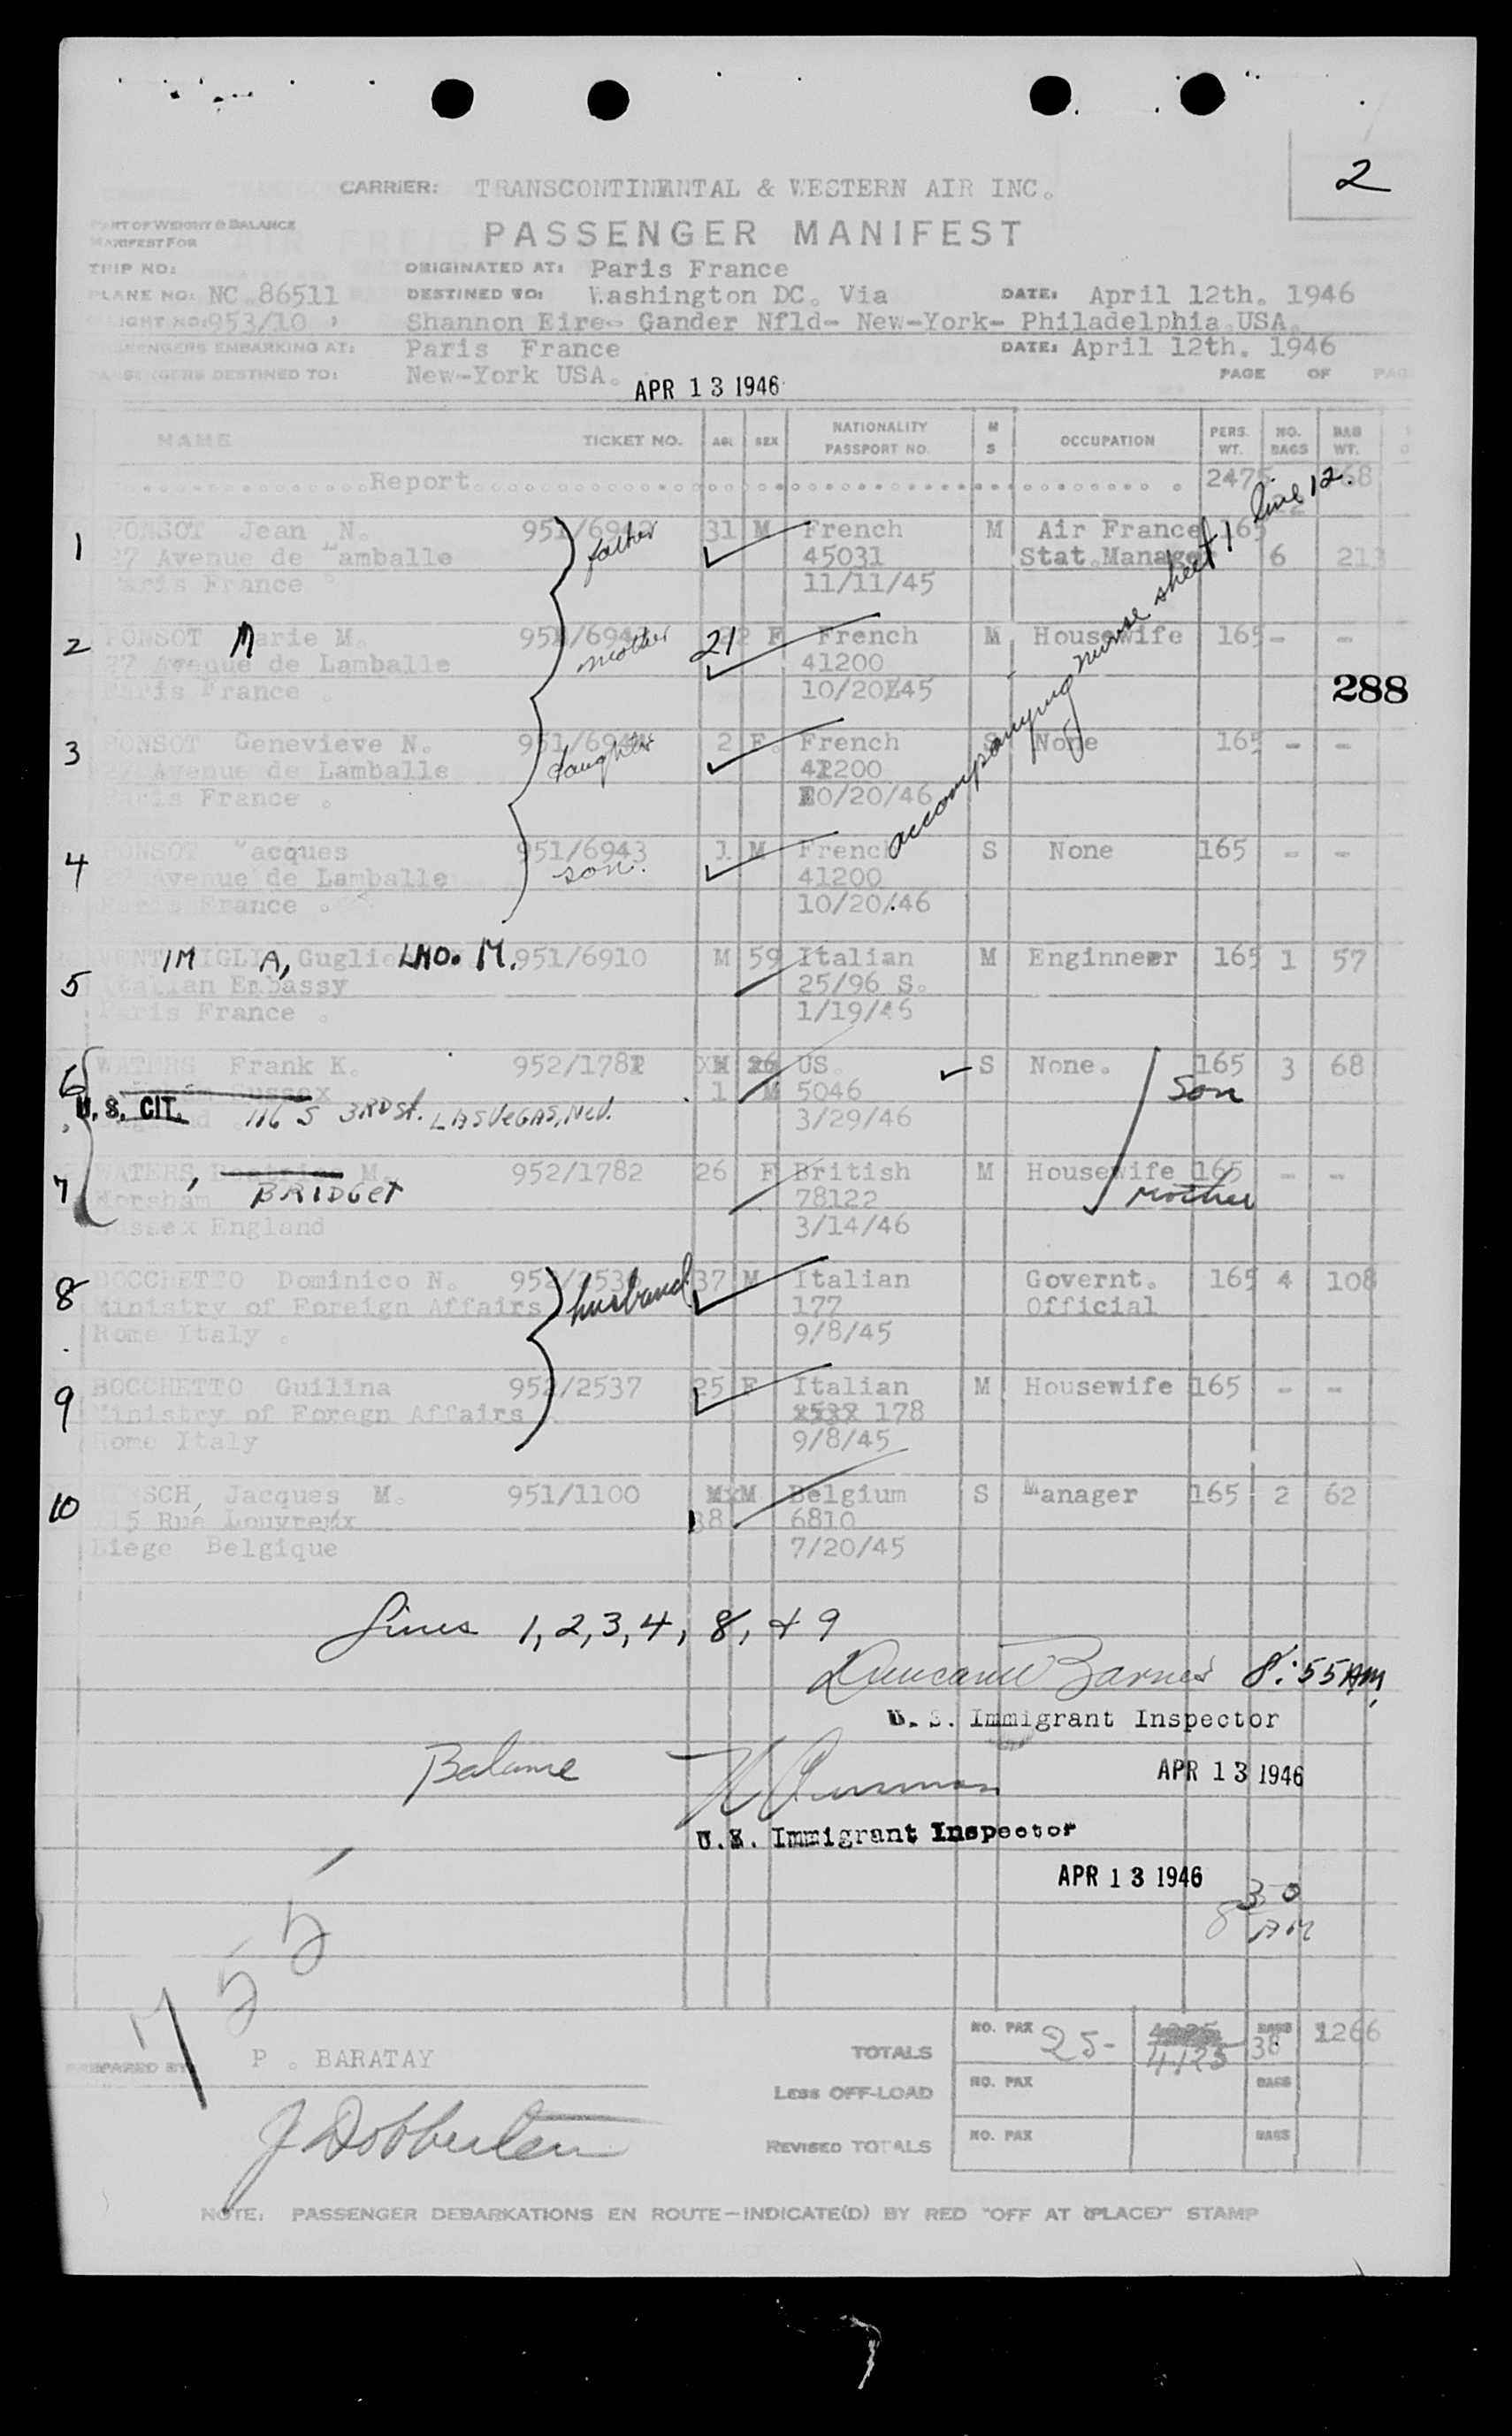 2
CARRIER: TRANSCONTINENTAL & WESTERN AIR INC.
PART OF WEIGHT & BALANCE
MANIFEST FOR
PASSENGER MANIFEST
TRIP NO:
ORIGINATED AT: Paris France
PLANE NO: NC 86511 DESTINED TO: Washington DC. Via DATE: April 12th. 1946
FLIGHT NO: 953/10 Shannon Eire- Gander Nfld- New-York- Philadelphia USA.
PASSENGERS EMBARKING AT: Paris France DATE: April 12th. 1946
PASSENGERS DESTINED TO: New-York USA. PAGE OF
APR 13 1946
NAME TICKET NO. AGE SEX NATIONALITY PASSPORT NO. M S OCCUPATION PERS. WT. NO. BAGS BAG WT.
Report 2475
accompanying nurse sheet 1 line 12.
1 PONSOT Jean N. 951/6942 father 31 M French M Air France 165
27 Avenue de Lamballe 45031 Stat.Manager 6 213
Paris France 11/11/45
2 PONSOT Marie M. mother 21 F French M Housewife 165 - -
27 Avenue de Lamballe 41200
Paris France . 10/20/45
288
3 PONSOT Genevieve N. daughter 2 F. French S None 165 - -
27 Avenue de Lamballe 41200
Paris France . 10/20/46
4 PONSOT Jacques 951/6943 son. 1 M French S None 165 - -
27 Avenue de Lamballe 41200
Paris France . 10/20/46
5 VENTIMIGLIA, Guglielmo. M. 951/6910 M 59 Italian M Enginneer 165 1 57
Italian Embassy 25/96 S.
Paris France . 1/19/46
6 WATERS Frank K. 952/1781 US. S None. 165 3 68
Sussex 1 M 5046 Son
U. S. CIT. 116 S 3RD St. LAS VEGAS, NEV. 3/29/46
7 WATERS, M. 952/1782 26 F British M Housewife 165 - -
Horsham BRIDGET 78122 mother
Sussex England 3/14/46
8 BOCCHETTO Dominico N. 952/2536 husband 37 M Italian Governt. 165 4 108
Ministry of Foreign Affairs 177 Official
Rome Italy . 9/8/45
9 BOCCHETTO Guilina 952/2537 25 F Italian M Housewife 165 - -
Ministry of Foregn Affairs 178
Rome Italy 9/8/45
10 SCH, Jacques M. 951/1100 M Belgium S Manager 165 2 62
115 Rue Louvreux 38 6810
Liege Belgique 7/20/45
Lines 1, 2, 3, 4, 8, & 9
Barnes 8:55 AM
U. S. Immigrant Inspector
Balance APR 13 1946
U.S. Immigrant Inspector
APR 13 1946
8 30 AM
7 55
PREPARED BY: P . BARATAY
J Dobberten
TOTALS NO. PAX 25- 4125 BAGS 38 1266
LESS OFF-LOAD NO. PAX BAGS
REVISED TOTALS NO. PAX BAGS
NOTE: PASSENGER DEBARKATIONS EN ROUTE—INDICATE(D) BY RED "OFF AT (PLACE)" STAMP